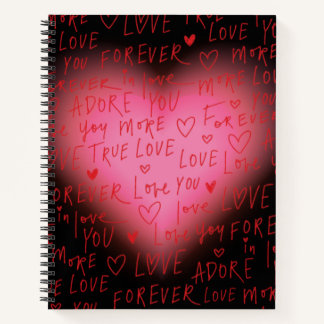 LOVE YOU LOVE
YOU FOREVER MORE
EVER in love LOVE
ADORE YOU
you MORE FOREVER
LOVE TRUE LOVE LOVE
FOREVER Love YOU Love
in love love LOVE
YOU Love you FOREVER
MORE LOVE in
LOVE ADORE
YOU FOREVER LOVE MORE